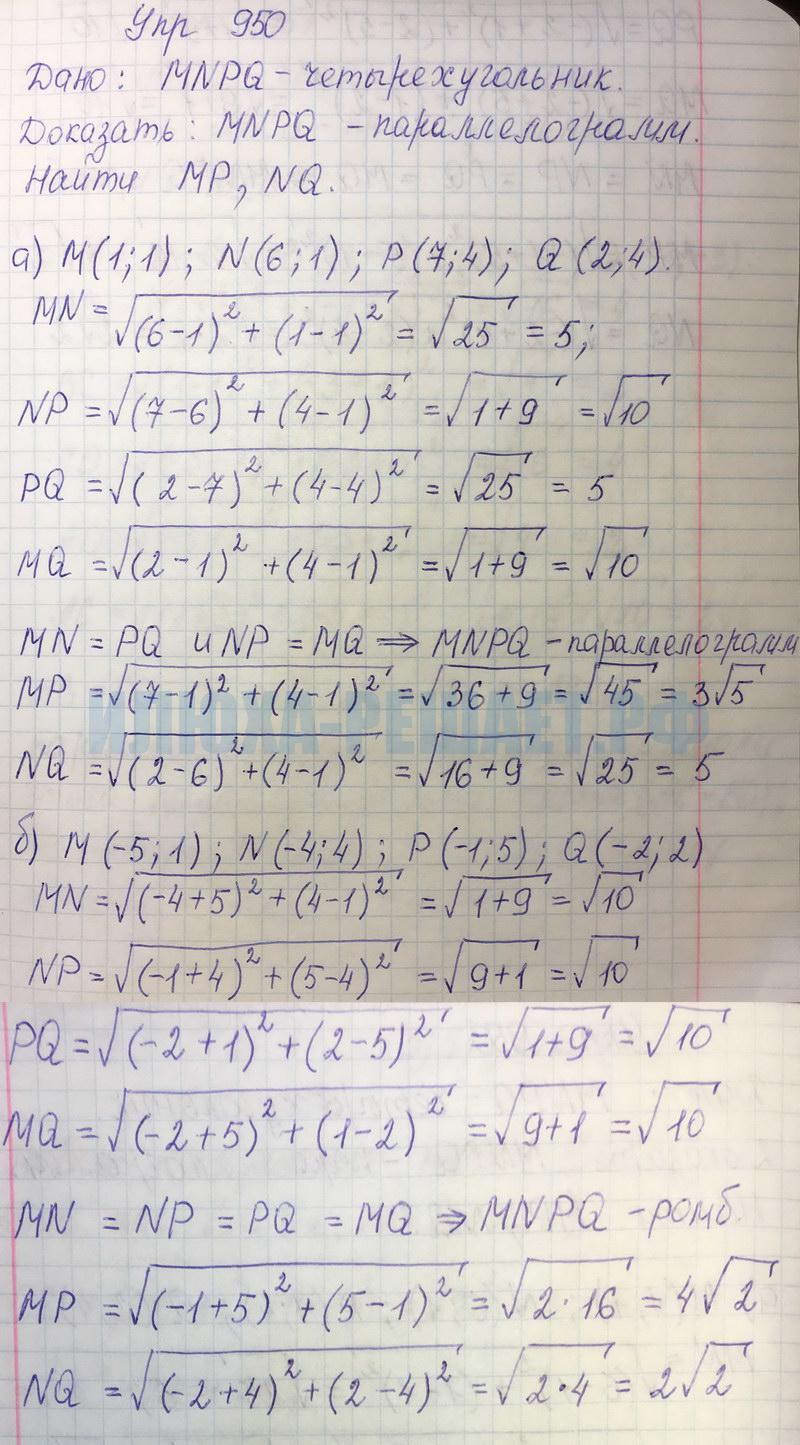 Упр 950
Дано: MNPQ - четырехугольник.
Доказать: MNPQ - параллелограмм.
Найти MP, NQ.
а) M(1;1); N(6;1); P(7;4); Q(2;4).
MN = √((6-1)² + (1-1)²) = √25 = 5;
NP = √((7-6)² + (4-1)²) = √(1+9) = √10
PQ = √((2-7)² + (4-4)²) = √25 = 5
MQ = √((2-1)² + (4-1)²) = √(1+9) = √10
MN = PQ и NP = MQ ⇒ MNPQ - параллелограмм
MP = √((7-1)² + (4-1)²) = √(36+9) = √45 = 3√5
ИЛЮХА-РЕШАЕТ.РФ
NQ = √((2-6)² + (4-1)²) = √(16+9) = √25 = 5
б) M(-5;1); N(-4;4); P(-1;5); Q(-2;2)
MN = √((-4+5)² + (4-1)²) = √(1+9) = √10
NP = √((-1+4)² + (5-4)²) = √(9+1) = √10
PQ = √((-2+1)² + (2-5)²) = √(1+9) = √10
MQ = √((-2+5)² + (1-2)²) = √(9+1) = √10
MN = NP = PQ = MQ ⇒ MNPQ - ромб.
MP = √((-1+5)² + (5-1)²) = √(2·16) = 4√2
NQ = √((-2+4)² + (2-4)²) = √(2·4) = 2√2